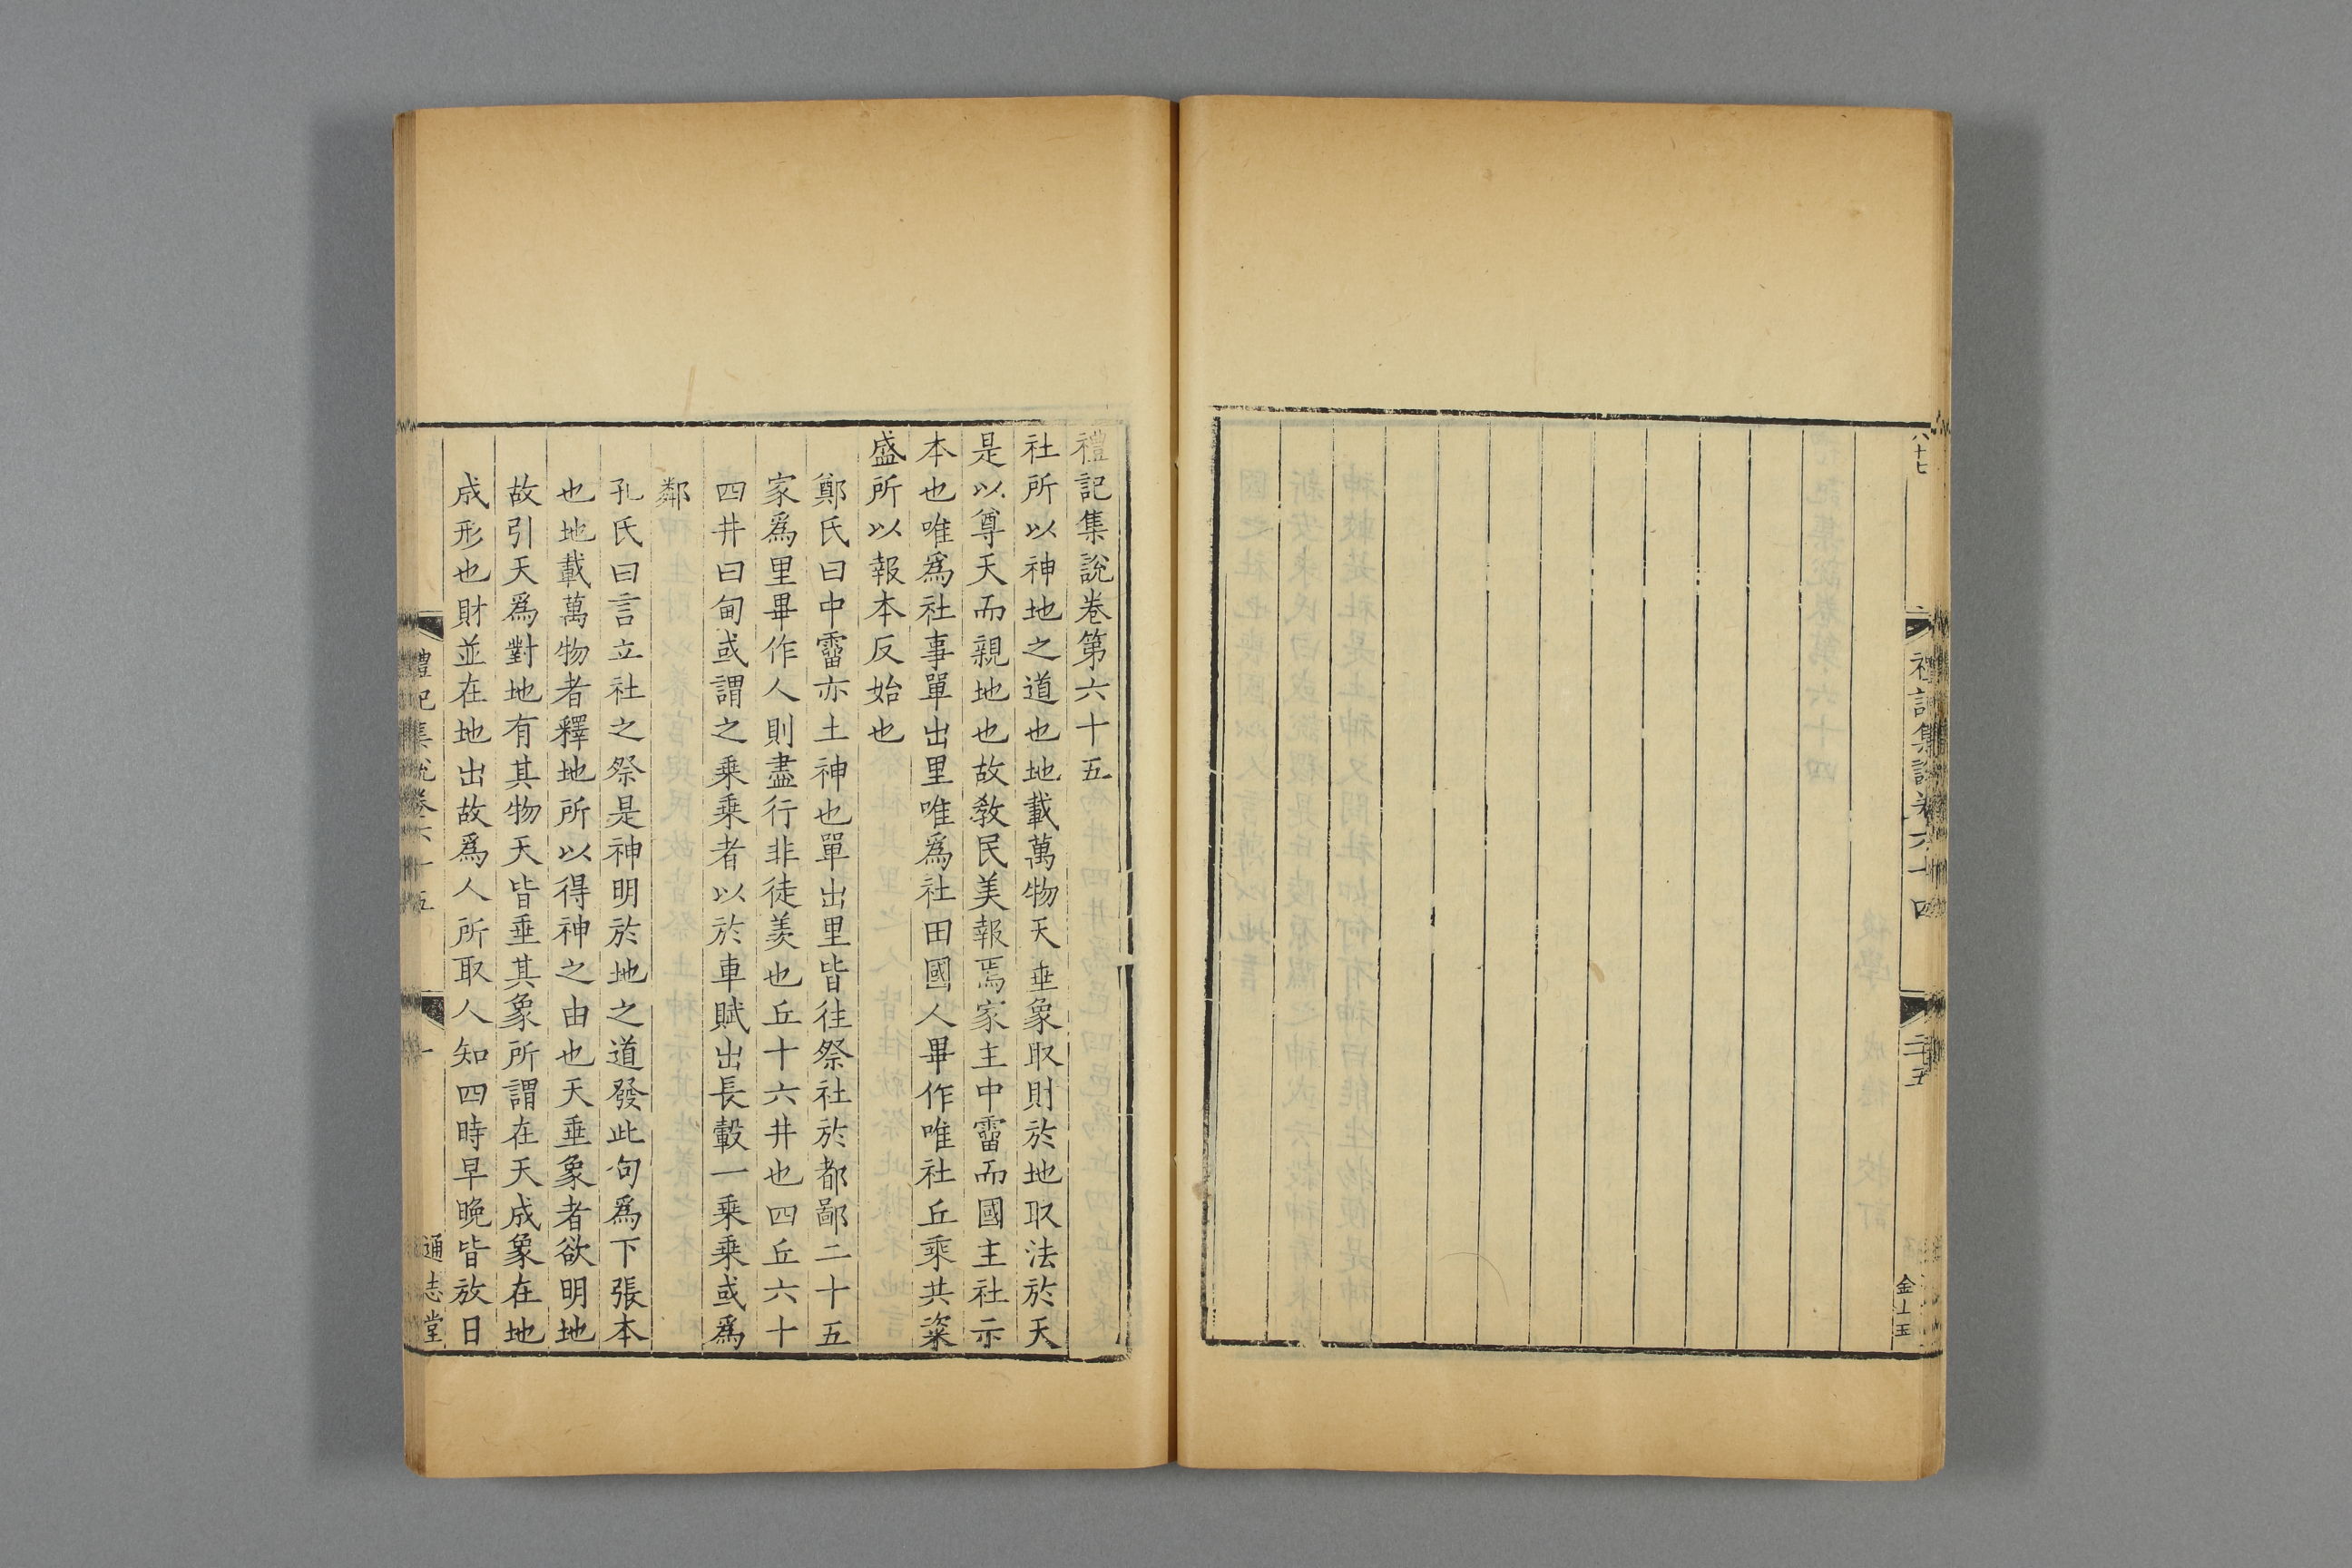 八十七
禮記集說卷六十四
二十五
金上玉
禮記集說卷第六十五
社所以神地之道也地載萬物天垂象取財於地取法於天
是以尊天而親地也故教民美報焉家主中霤而國主社示
本也唯爲社事單出里唯爲社田國人畢作唯社丘乘共粢
盛所以報本反始也
鄭氏曰中霤亦土神也單出里皆往祭社於都鄙二十五
家爲里畢作人則盡行非徒羨也丘十六井也四丘六十
四井曰甸或謂之乘乘者以於車賦出長轂一乘乘或爲
鄰
孔氏曰言立社之祭是神明於地之道發此句爲下張本
也地載萬物者釋地所以得神之由也天垂象者欲明地
故引天爲對地有其物天皆垂其象所謂在天成象在地
成形也財並在地出故爲人所取人知四時早晚皆放日
禮記集說卷六十五
一
通志堂